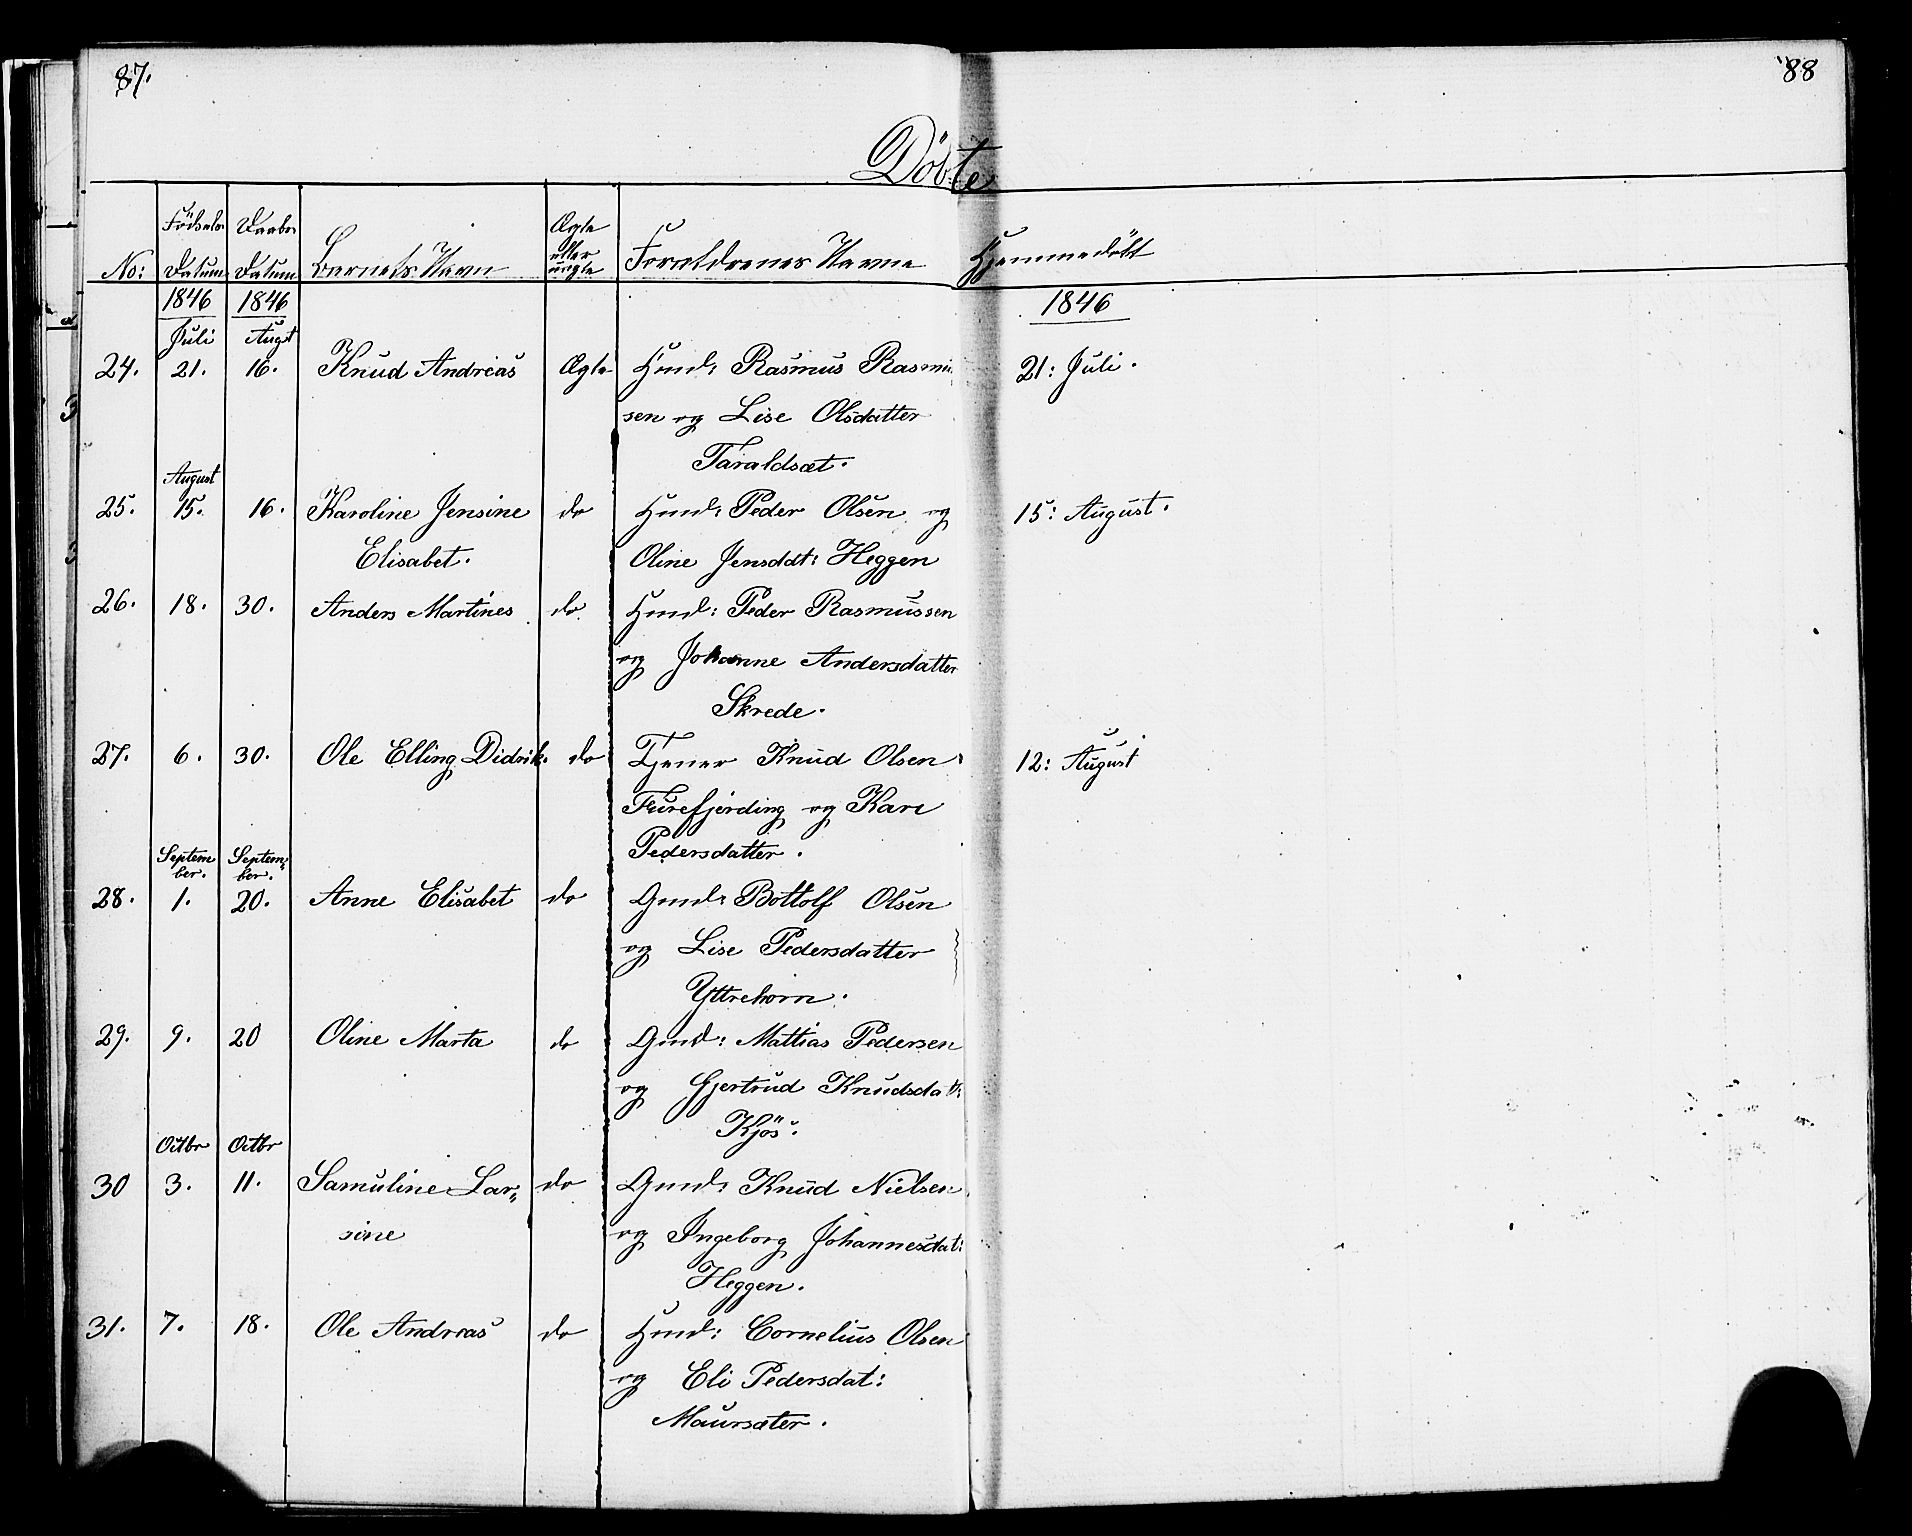 87.
88
Döbte
No: Födsels Datum Daabs Datum Barnets Navn Ægte eller uægte Forældrenes Navne Hjemmedöbt
1846 1846 1846
Juli Augst
24. 21. 16. Knud Andreas Ægte Hmd: Rasmus Rasmus 21: Juli.
sen og Lise Olsdatter
Taraldsæt.
August
25. 15. 16. Karoline Jensine do Hmd: Peder Olsen og 15: August.
Elisabet. Oline Jensddt: Heggen
26. 18. 30. Anders Martines do. Hmd: Peder Rasmussen
og Johanne Andersdatter
Skrede.
27. 6. 30. Ole Elling Didrik. do Tjener Knud Olsen 12: August
Furefjerding og Kari
Pedersdatter.
September. September.
28. 1. 20. Anne Elisabet do Gmd: Bottolf Olsen
og Lise Pedersdatter
Yttrehorn.
29. 9. 20 Oline Marta do Gmd: Mattias Pedersen
og Gjertrud Knudsdat:
Kjös.
Octbr Octbr
30 3. 11. Samuline Lar- do Gmd: Knud Nielsen
sine og Ingeborg Johannesdat:
Heggen.
31. 7. 18. Ole Andreas do Hmd: Cornelius Olsen
og Eli Pedersdat:
Maursæter.